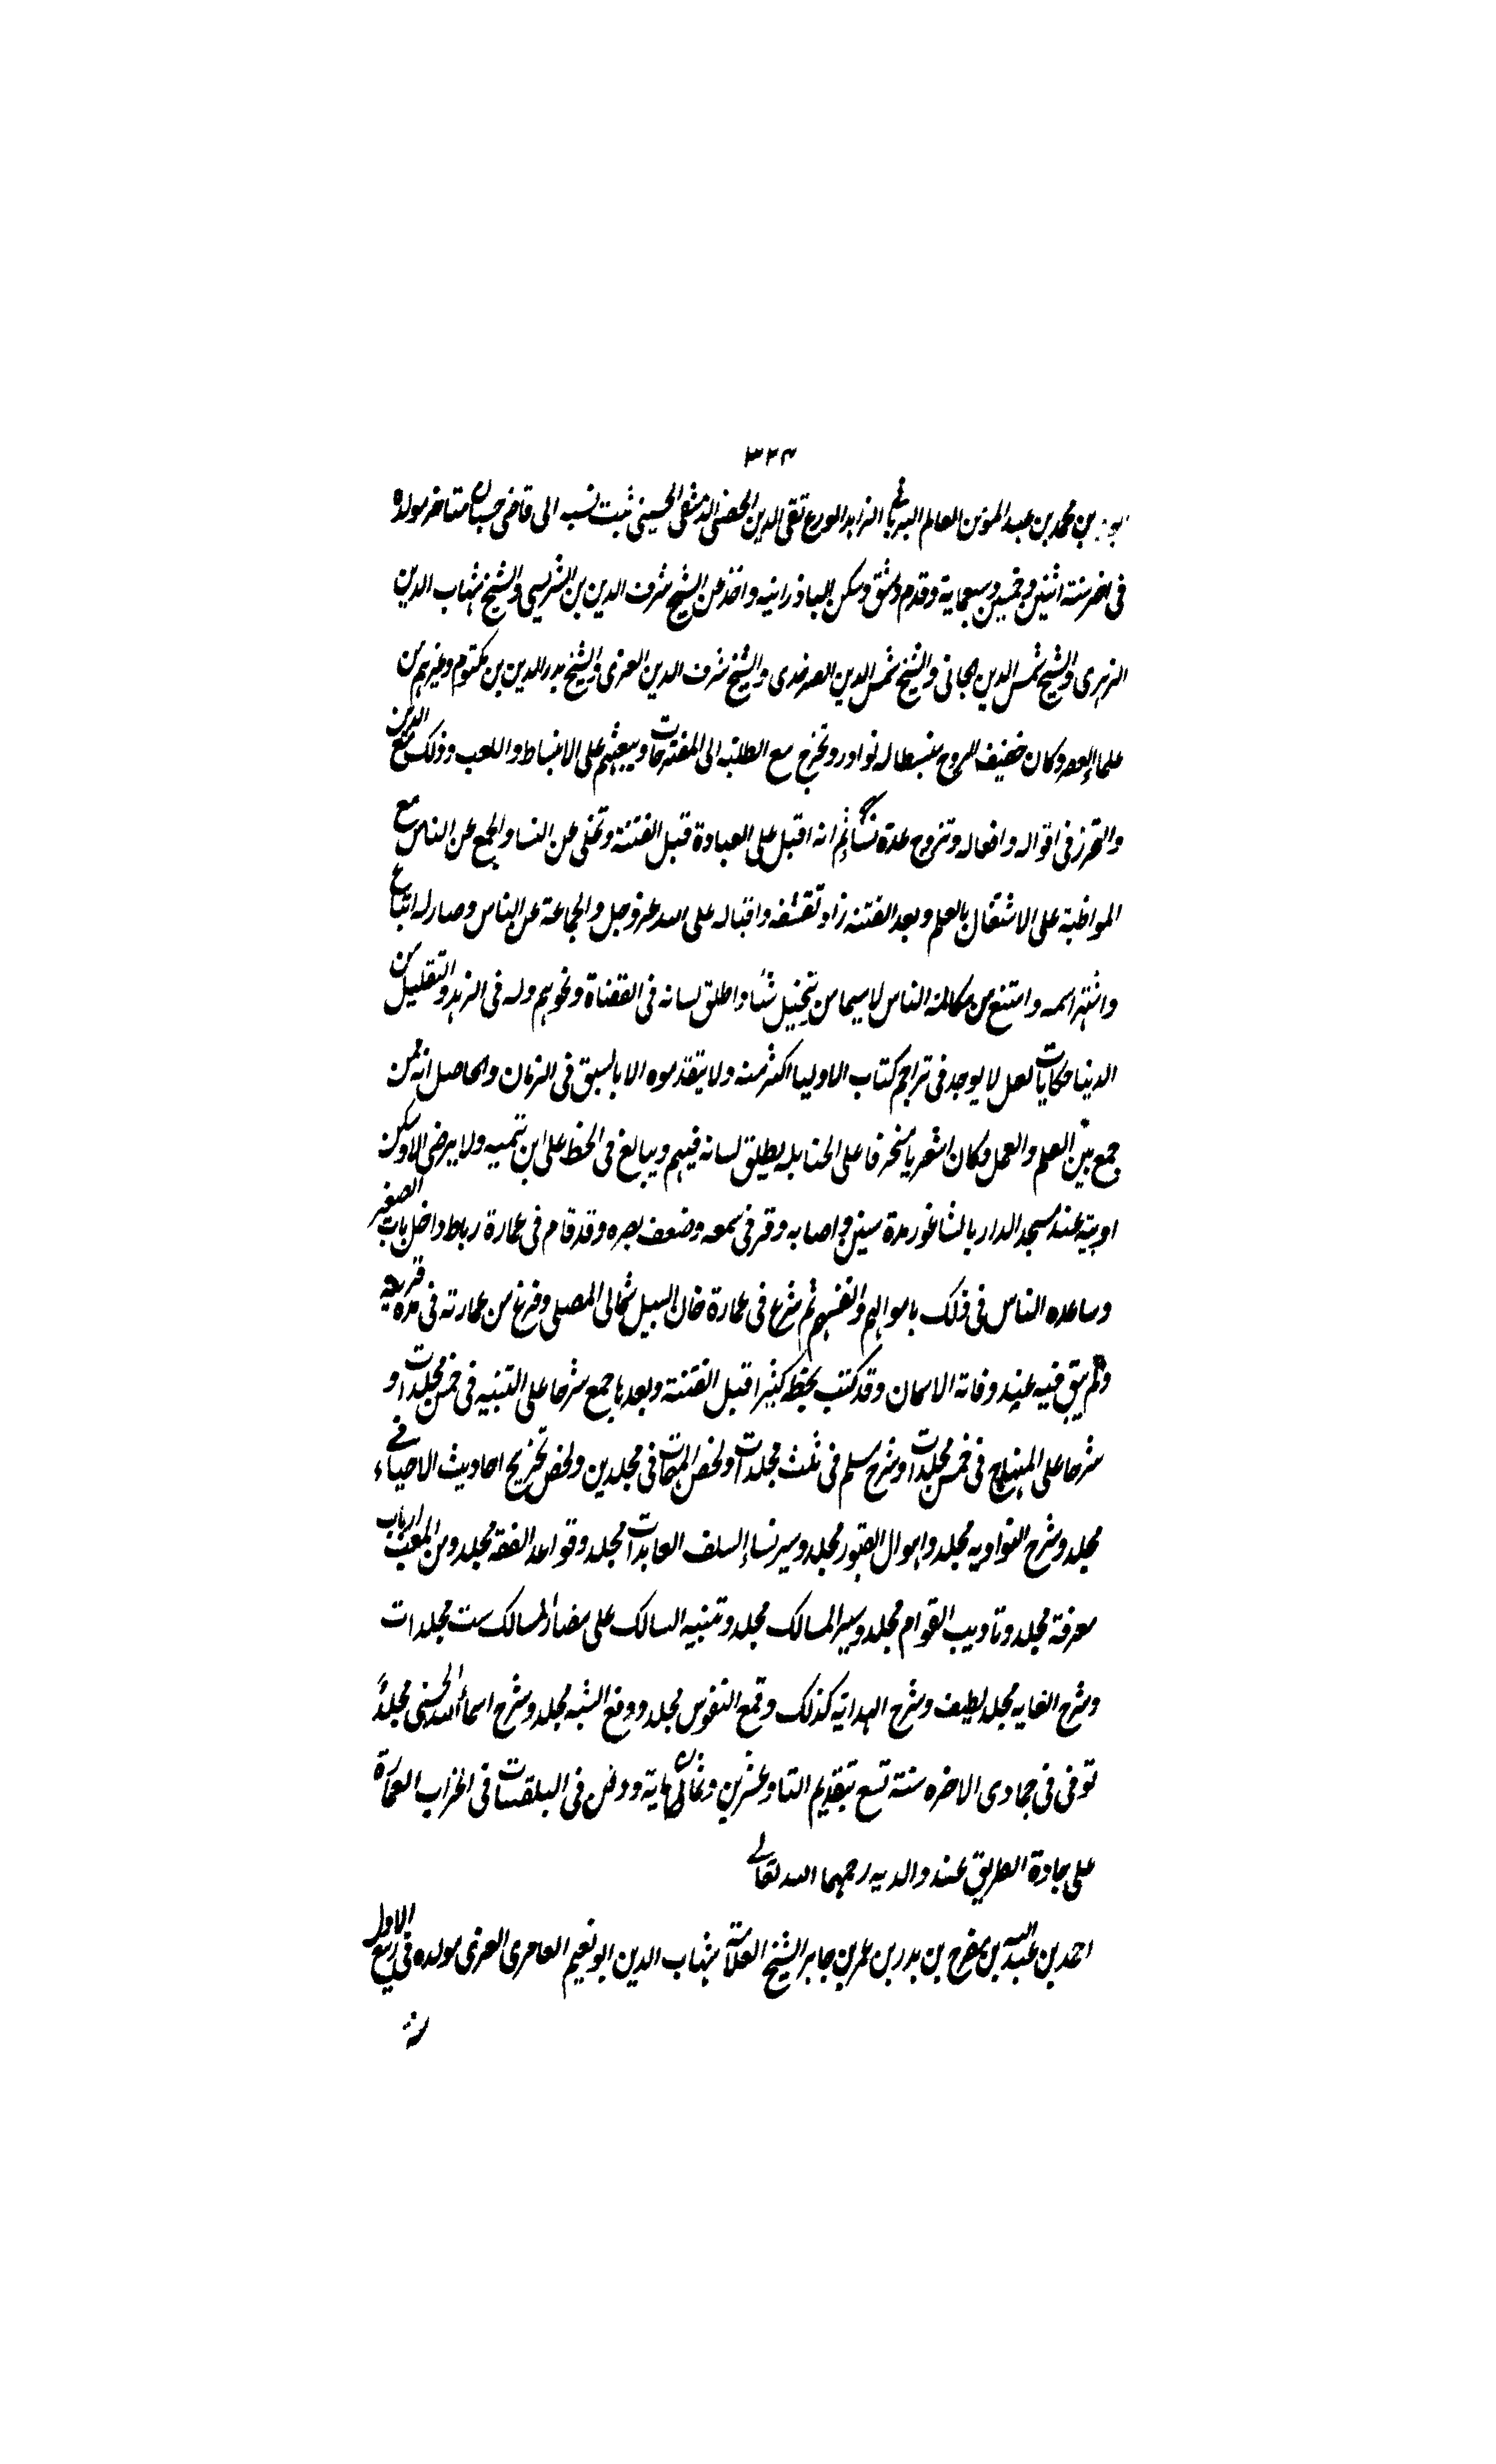 ٣٢٤
بن محمد بن عبد المومن العالم الربانى الزاهد الورع تقى الدين الحصنى الدمشقى الحسينى ثبت نسبه الى قاضى حسبان متاخر مولده
فى اخر سنة اثنين وخمسين وسبعماية وقدم دمشق وسكن البادرانية واخذ عن الشيخ شرف الدين بن الشريسى والشيخ شهاب الدين
الزهرى والشيخ شمس الدين والشيخ شمس الدين الصرخدى والشيخ شرف الدين الغزى والشيخ بدر الدين بن مكتوم وغيرهم من
علماء العصر وكان خفيف الروح منبسطا له نوادر ويخرج مع الطلبة الى المفترجات ويبعثهم على الانبساط واللعب وذلك مع الدين
والتحرز فى اقواله وافعاله وتزوج عدة نساء ثم انه اقبل على العبادة قبل الفتنة وتخلى عن النسا وانجمع عن الناس مع
المواظبة على الاشتغال بالعلم وبعد الفتنة زاد تقشفه واقباله على الله عز وجل وانجماعه عن الناس وصار له اتباع
واشتهر اسمه وامتنع من مكالمة الناس لا سيما من يتخيل شيا واطلق لسانه فى القضاة ونحوهم وله فى الزهد والتقليل من
الدنيا حكايات لعل لا يوجد فى تراجم كتاب الاوليا اكثر منه ولا يتقدموه الا بالسبق فى الزمان والحاصل انه ممن
جمع بين العلم والعمل وكان اشعريا منحرفا على الحنابلة يطلق لسانه فيهم ويبالغ فى الحط على ابن تيمية
عند مسجد الدار بالشاغور مدة سنين واصابه وقر فى سمعه وضعف بصره وقد قام فى عمارة رباط داخل باب الصغير
وساعده الناس فى ذلك باموالهم وانفسهم ثم شرع فى عمارة خان السبيل شمالى المصلى وفرغ من عمارته فى مدة قريبة
ولم يبق فيه عند وفاته الا مكان وقد كتب بخطه كثيرا قبل الفتنة وبعدها جمع شرحا على التنبيه فى خمس مجلدات و
شرحا على المنهاج فى خمس مجلدات وشرح مسلم فى ثلث مجلدات ولخص المهمات فى مجلدين ولخص تخريج احاديث الاحياء فى
مجلد وشرح النواوية مجلد واهوال القبور مجلد وسير نساء السلف العابدات مجلد وقواعد الفقه مجلد ومن المعيب ارباب
معرفة مجلد وتاديب القوام مجلد وسير المسالك مجلد وتنبيه السالك على مضار المسالك ست مجلدات
وشرح الغاية مجلد لطيف وشرح الهداية كذلك وقمع النفوس مجلد ودفع الشبه مجلد وشرح اسماء الله الحسنى مجلداً
توفى فى جمادى الاخره سنة تسع بتقديم التا وعشرين وثمان ماية ودفن فى القبيبات فى اطراف العمارة
على جادة الطريق عند والديه رحمهما الله تعالى
احمد بن عبد الله بن مفرح بن بدر بن عمر بن جابر الشيخ العلامة شهاب الدين ابو نعيم العامرى الغزى مولده فى ربيع الاول
سنة